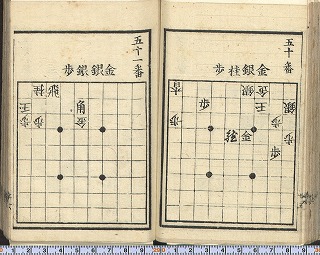 五十番
金銀桂歩
香
金
銀
王
銀
歩
歩
歩
歩
金
歩
五十一番
金銀銀歩
桂
王
角
歩
歩
金